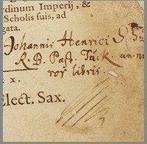 rdinum Imperij, &
Scholis suis, ad
gata.
Johannis Henrici
R. B. Past.
ex libris.
x.
Elect. Sax.